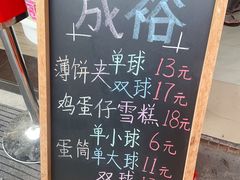 成裕
薄饼夹单球13元
双球17元
鸡蛋仔雪糕18元
蛋筒单小球6元
单大球11元
双球